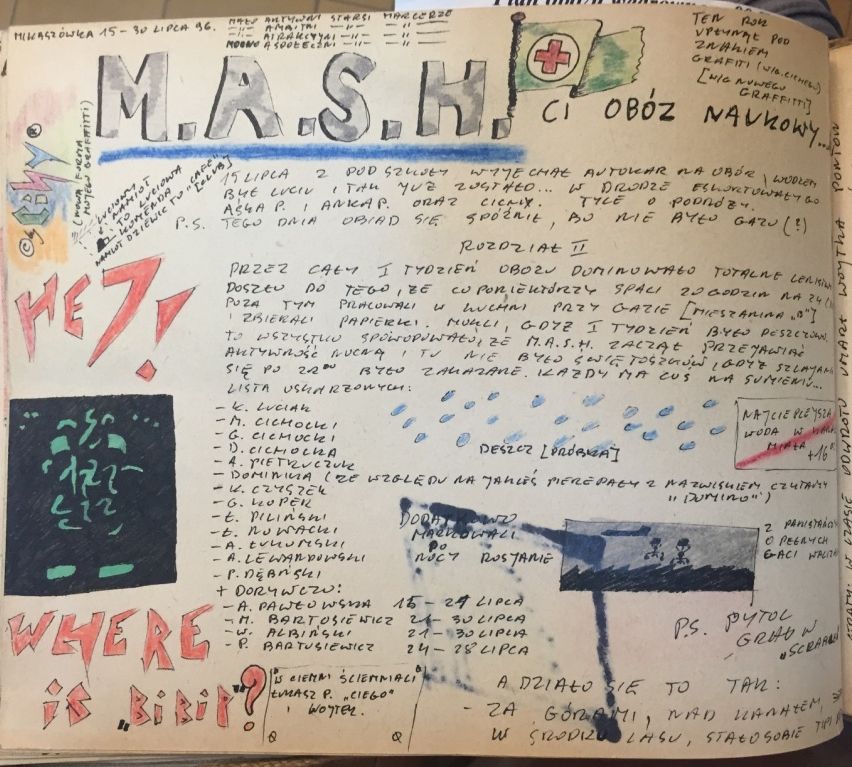 MIKASZÓWKA 15-30 LIPCA 96.
MAŁO AKTYWNI STARSI HARCERZE
-"- AMBITNI -"- -"-
-"- ATRAKCYJNI -"- -"-
MOCNO ASPOŁECZNI -"- -"-
TEN ROK
UPŁYNĄŁ POD
ZNAKIEM
GRAFITI (WG. CICHEGO)
[WG NOWEGO
GRAFFITTI]
M.A.S.H.
CI OBÓZ NAUKOWY...
© by ®
(NOWA FORMA
MUTEU GRAFFITTI)
LUCIOWY
NAMIOT
TO LUCIOWA
KOMENDA
NAMIOT DZIEWIC TO "CAFE"
[CLUB]
15 LIPCA Z POD SZKOŁY WYJECHAŁ AUTOKAR NA OBÓR, WODZEM
BYŁ LUCIU I TAK JUŻ ZOSTAŁO... W DRODZE ESKORTOWAŁY GO
AŚKA P. I ANKA P. ORAZ CICHY. TYLE O PODRÓŻY.
P.S. TEGO DNIA OBIAD SIĘ SPÓŹNIŁ, BO NIE BYŁO GAZU (?)
ROZDZIAŁ II
HE?!
PRZEZ CAŁY I TYDZIEŃ OBOZU DOMINOWAŁO TOTALNE
DOSZŁO DO TEGO, ŻE CO PONIEKTÓRZY SPALI 20 GODZIN NA 24
POZA TYM PRACOWALI W KUCHNI PRZY GAZIE [MIESZANINA "B"]
I ZBIERALI PAPIERKI. MOKLI, GDYŻ I TYDZIEŃ BYŁO DESZCZOWO
TO WSZYSTKO SPOWODOWAŁO, ŻE M.A.S.H. ZACZĄŁ PRZEJAWIAĆ
AKTYWNOŚĆ NOCNĄ I TU NIE BYŁO ŚWIĘTOSZKÓW, GDYŻ SZLAJANIE
SIĘ PO 22°° BYŁO ZAKAZANE. KAŻDY MA COŚ NA SUMIENIU...
LISTA OSKARŻONYCH:
- K. LUCIAK
- M. CICHOCKI
- G. CICHOCKI
- D. CICHOCKA
- A. PIETRUCZUK
- DOMINIKA (ZE WZGLĘDU NA JAKIEŚ PIEREPAŁY Z NAZWISKIEM CZYTAMY
"DOMINO")
- K. CZYŻEK
- G. KOPER
- Ł. PILIŃSKI
- Ł. NOWACKI
- A. ŁUKOMSKI
- A. LEWANDOWSKI
- P. DĘBIŃSKI
+ DORYWCZO:
- A. PAWŁOWSKA 15 - 24 LIPCA
- M. BARTOSIEWICZ 21 - 30 LIPCA
- W. ALBIŃSKI 21 - 30 LIPCA
- P. BARTOSIEWICZ 24 - 28 LIPCA
DESZCZ [PRÓBKA]
NAJCIEPLEJSZA
WODA W
MIAŁA
+16°
DODATKOWO
MARKOWALI
PO
NOCY ROSJANIE
Z PAŃSTWA
O PEŁNYCH
GACI
P.S. PYTOL
GRAŁ W
"SCRABBLE
WHERE
is "BiBiP"?
W CIEMNI ŚCIEMNIALI
ŁUKASZ P. "CIEGO"
I WOJTEK.
A DZIAŁO SIĘ TO TAK:
- ZA GÓRAMI, NAD KANAŁEM,
W ŚRODKU LASU, STAŁO SOBIE
STRATY: W CZASIE ODWROTU UMARŁ WOJTKA PONTON